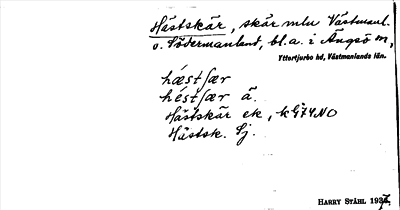 Hästskär, skär mln Västmanl.
o. Södermanland, bl. a. i Ängsö m,
Yttertjurbo hd, Västmanlands län.
hǽstʃær
héstʃær ä.
Hästskär ek, kG74NO
Hästsk. Sj.
HARRY STÅHL 1937.